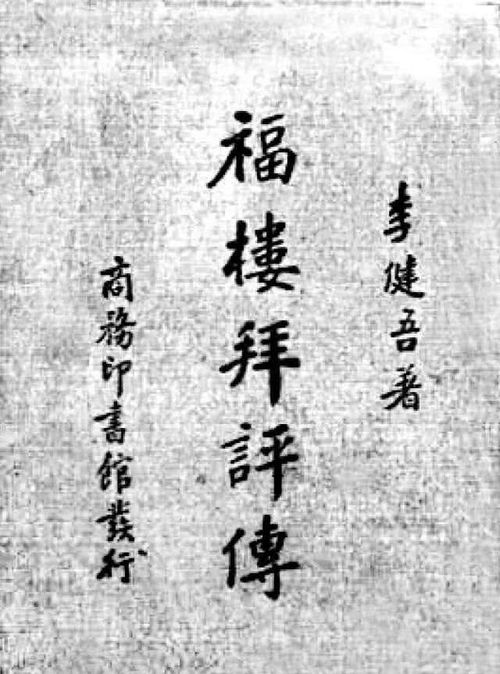 李健吾著
福樓拜評傳
商務印書館發行